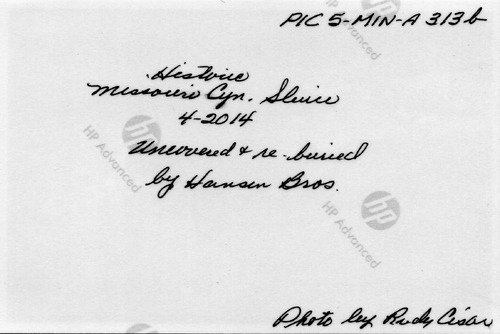 PIC 5-MIN-A 313b
Historic
Missouri Cyn. Sluice
4-2014
Uncovered & re-buried
by Hansen Bros.
Photo by Rudy Cisar
hp
HP Advanced
hp
HP Advanced
hp
HP Advanced
hp